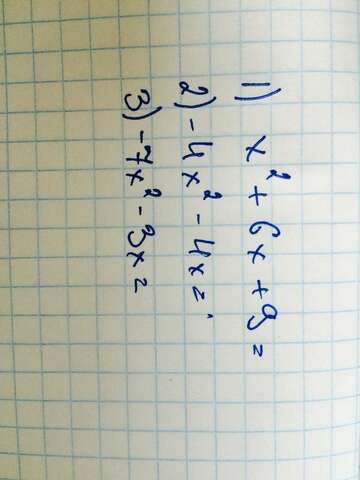 1) x² + 6x + 9 =
2) -4x² - 4x =
3) -7x² - 3x =